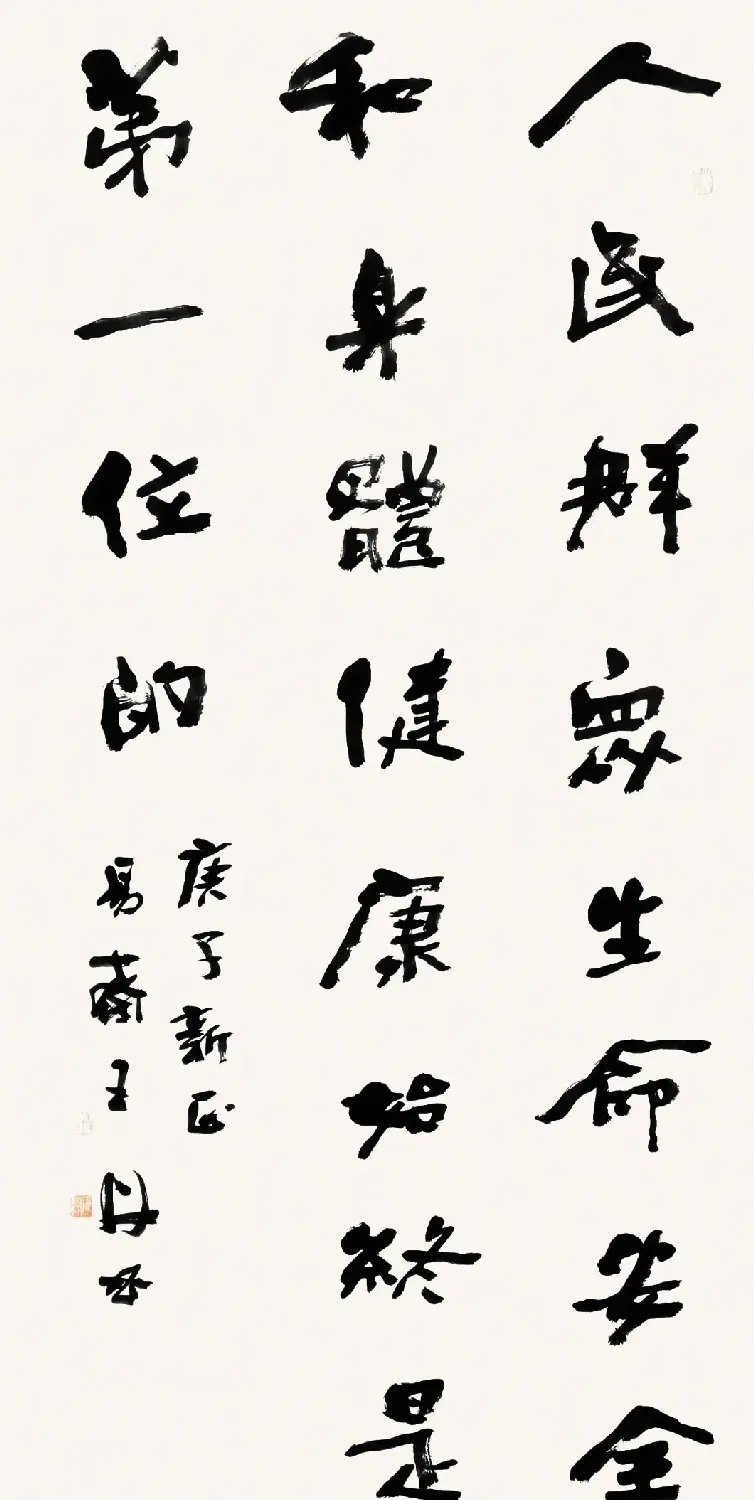 人民群眾生命安全
和身體健康始終是
第一位的
庚子新正
易齋王丹